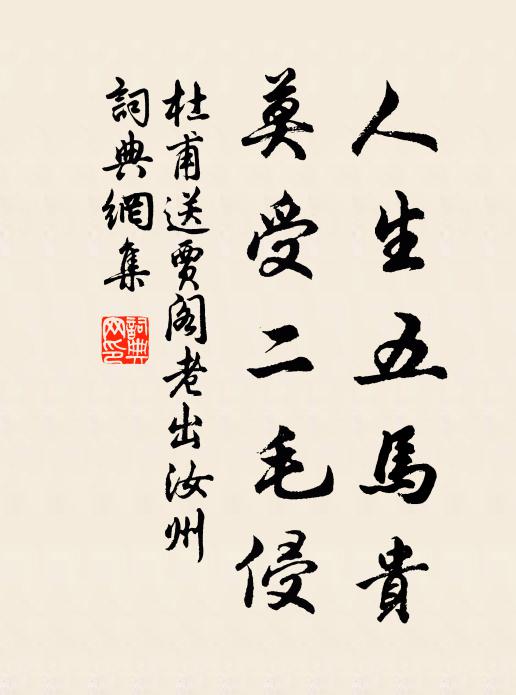 人生五馬貴
莫受二毛侵
杜甫送賈閣老出汝州
詞典網集
詞典网印